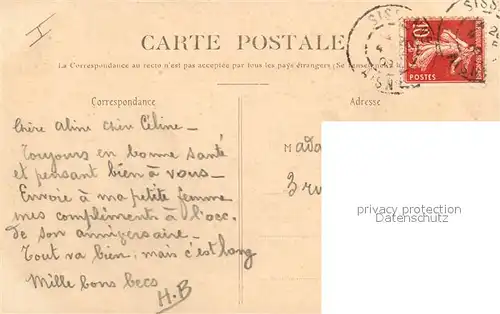 I
CARTE POSTALE
La Correspondance au recto n'est pas acceptée par tous les pays étrangers (Se renseigner
Correspondance
Adresse
Chère Aline chère Céline —
Toujours en bonne santé
et pensant bien à vous —
Envoie à ma petite femme
mes compliments à l'occ.
de son anniversaire —
Tout va bien, mais c'est long
Mille bons becs
H.B
Mada
3 ru
SISS
AISNE
10
POSTES
SISS
privacy protection
Datenschutz